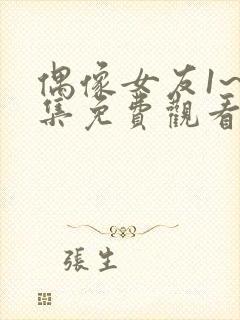 偶像女友1~
集免費觀看
張生